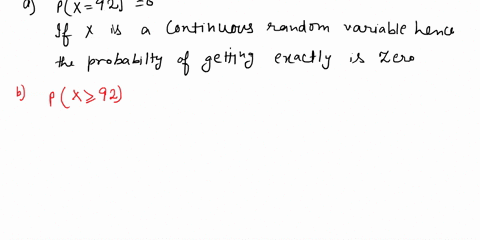 a) P(X=92) = 0
If X is a Continuous random variable hence
the probabilty of getting exactly is zero
b) P(X⩾92)